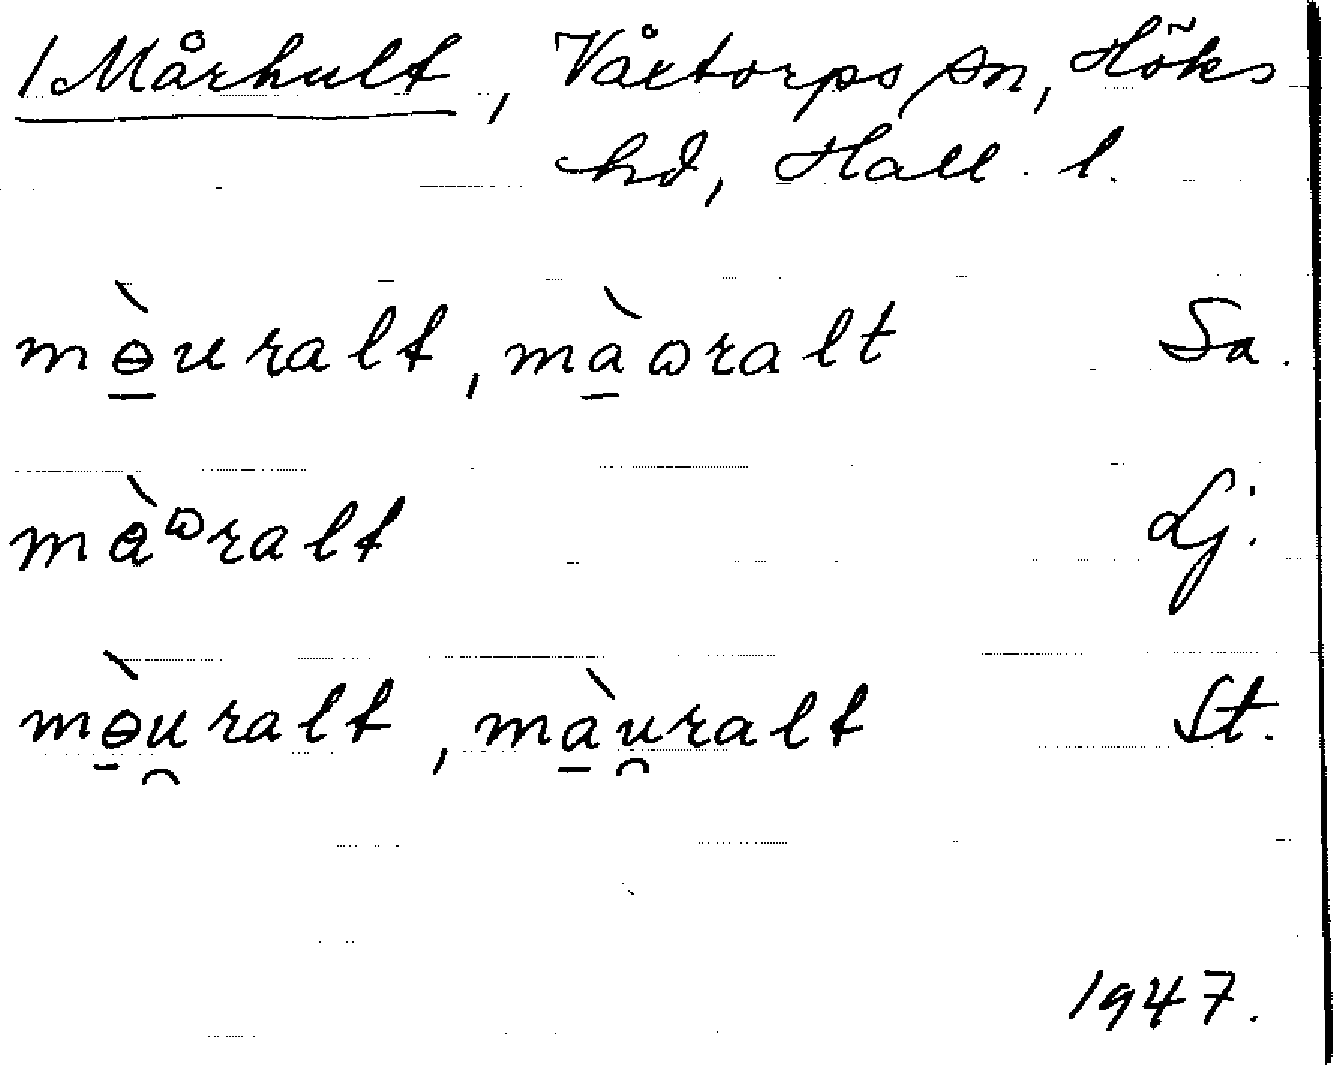 / Mårhult, Våxtorps sn, Höks
hd, Hall. l.
mɵ̱̀uralt, mà̱ɷralt Sa.
màᶹralt Lj.
mɵ̱̀u̯ralt, mà̱u̯ralt St.
1947.